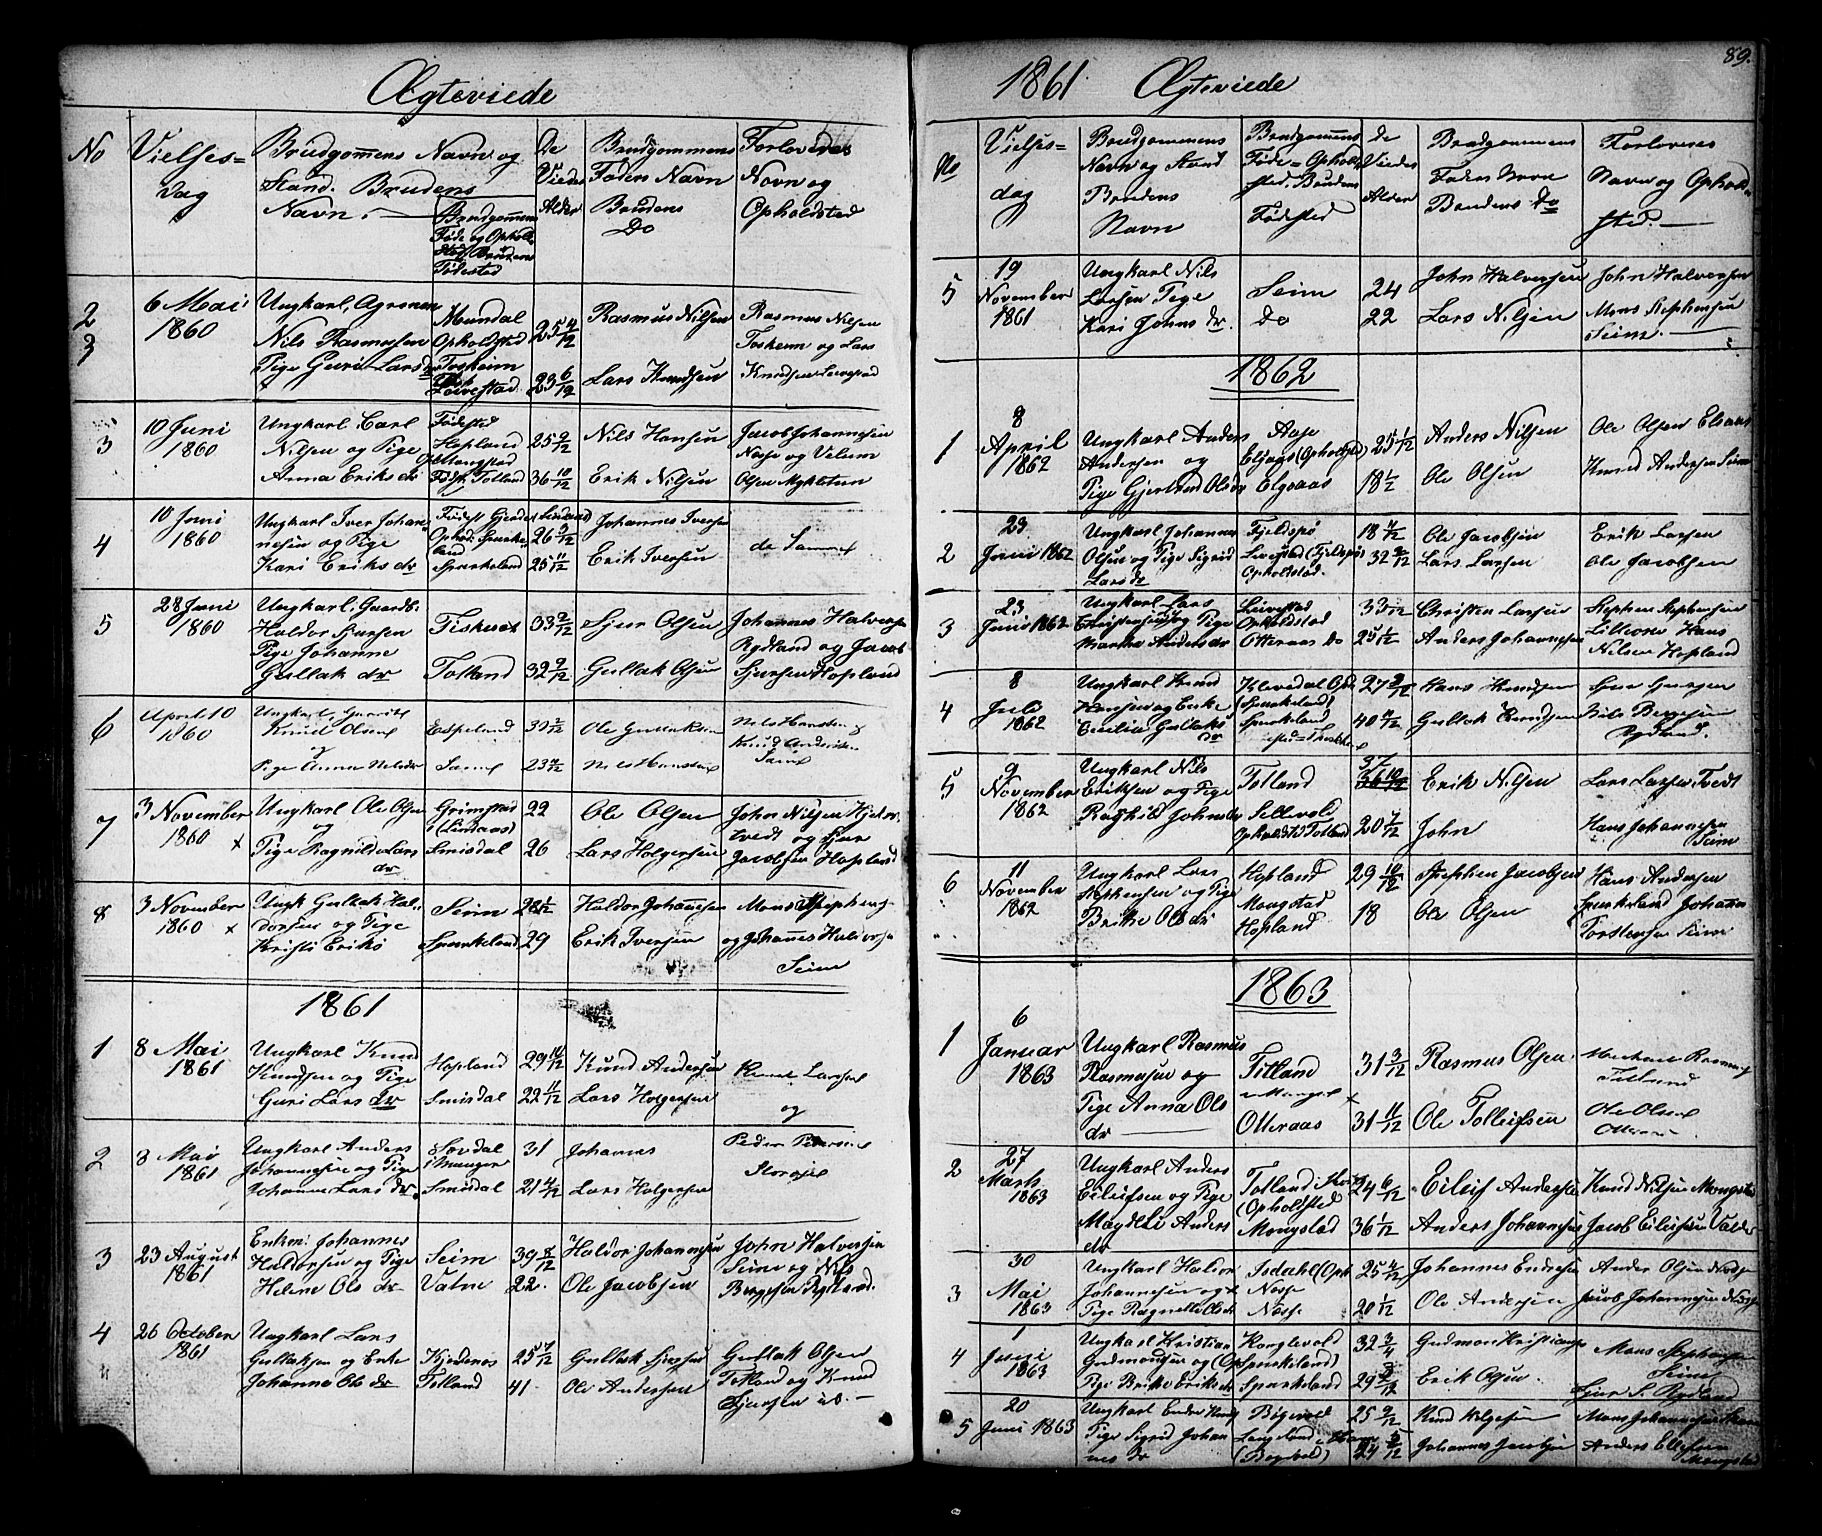 Ægteviede
No
Vielses-
Dag
Brudgommens Navn og
Stand. Brudens
Navn.
Brudgommens
Føde og Ophold
Sted Brudens
Fødested
De
Viedes
Alder
Brudgommens
Faders Navn
Brudens
Do
Forlovernes
Navn og
Opholdsted
2
3
6 Mai
1860
Ungkarl,
Nils Rasmusen
Pige Guri Lars dr
Mundal
Opholdsted
Toskem
Leivestad
25 4/12
23 6/12
Rasmus Nilsen
Lars Knudsen
Rasmus Nilsen
Toskem og Lars
Knudsen Leivestad
3
10 Juni
1860
Ungkarl Carl
Nilsen og Pige
Anna Eriks dr
Fødested
Hopland
Mongstad
Fødst Totland
25 9/12
36 10/12
Nils Hansen
Erik Nilsen
Jacob Johannesen
Nesse og Villum
Olsen Mykletun
4
10 Juni
1860
Ungkarl Iver Johan-
nesen og Pige
Kari Eriks dr
Fødest Gjerde Lindaas
Ophod. Spurke-
land
Spurkeland
26 9/12
25 11/12
Johannes Iversen
Erik Iversen
de Samme
5
28 Juni
1860
Ungkarl, Gaardb.
Haldor Sjursen
Pige Johanne
Gullak dr
Fiskeset
Totland
33 9/12
32 9/12
Sjur Olsen
Gullak Olsen
Johannes Halversen
Rydland og Jacob
Sjursen Hopland
6
April 10
1860
Ungkarl,
Knud Olsen
og
Pige Anna Nils dr
Espeland
Seim
Ole Gullaksen
Nils Hansen
Nils Hansen
Knud Andersen
Seim
7
3 November
1860 x
Ungkarl Ole Olsen
og
Pige Ragnilde Lars
dr
Grimstad
(Lindaas)
Smisdal
22
26
Ole Olsen
Lars Holgersen
John Nilsen Hjelm-
tvedt og Sjur
Jacobsen Hopland
8
3 November
1860 x
Ungk Gullak Hal-
dorsen og Pige
Kristi Eriks
Seim
Spurkeland
28 1/12
29
Haldor Johannesen
Erik Iversen
Mons Stephens
og Johannes Halversen
Seim
1861
1
8 Mai
1861
Ungkarl Knud
Knudsen og Pige
Guri Lars dr
Hopland
Smisdal
29 10/12
22 11/12
Knud Andersen
Lars Holgersen
Knud Larsen
og
2
8 Mai
1861
Ungkarl Anders
Johannesen og Pige
Johanne Lars dr.
Sordal
i Manger
Smisdal
31
21 4/12
Johannes
Lars Holgersen
Peder Petersen
3
23 August
1861
Enkm: Johannes
Haldorsen og Pige
Helene Ols dr
Seim
Vatne
39 8/12
22.
Haldor Johannesen
Ole Jacobsen
John Halversen
Seim og Nils
Bergesen Rydland.
4
26 October
1861
Ungkarl Lars
Gullaksen og Enke
Johanna Ols dr
Totland
25 7/12
41.
Gullak Sjursen
Ole Andersen
Gullak Olsen
Totland og Knud
Sjursen
89.
1861 Ægteviede
No
Vielses-
dag
Brudgommens
Navn og Stand
Brudens
Navn
Brudgommens
Føde = Ophold
sted. Brudens
Fødested
De
Viedes
Alder
Brudgommens
Fader Navn
Brudens Do
Forlovernes
Navn og Ophold-
sted.
5
19
November
1861
Ungkarl Nils
Larsen Pige
Kari Johns dr.
Seim
Do
24
22
John Halversen
Lars Nilsen
John Halversen
Mons Stephensen
Seim.
1862
1
8
April
1862
Ungkarl Anders
Andersen og
Pige Gjertrud Ols dr
Aase
(Opholdsted)
Elvaas
25 1/12
18 1/2
Anders Nilsen
Ole Olsen
Ole Olsen Elvaas
Knud Andersen Seim
2
23
Juni 1862
Ungkarl Johannes
Olsen og Pige Sigrid
Lars dr
Fjeldspø
Leivestad (Fjeldspø
Opholdsted.
18 7/12
32 9/12
Ole Jacobsen
Lars Larsen
Erik Larsen
Ole Jacobsen
3
23
Juni 1862
Ungkarl Lars
Christensen og Pige
Martha Anders dr
Leivestad
Opholdsted
Otteraas do
25 1/12
Christen Larsen
Anders Johannesen
Stephen Stephensen
Lilleosen Hans
Nilsen Hopland
4
8
Juli
1862
Ungkarl Knud
Hansen og Enke
Cecilia Gullaks
dr
Klevedal Oph
Spurkeland)
Spurkeland
27 9/12
40 7/12
Hans Knudsen
Gullak Knudsen
Nils Bergesen
Rydland.
5
9
November
1862
Ungkarl Nils
Eriksen og Pige
Ragnild Johns dr
Totland
Sellevold
Opholdsted Totland
37
36 10/12
20 7/12
Erik Nilsen
John
Lars Larsen Tvedt
Hans Johannesen
Seim
6
11
November
1862
Ungkarl Lars
Stephensen og Pige
Brite Ols dr
Hopland
Mongstad
Hopland
29 10/12
18
Stephen Jacobsen
Ole Olsen
Hans Andersen
Spurkeland Johann
Torstensen Seim
1863
1
6
Januar
1863
Ungkarl Rasmus
Rasmusen og
Pige Anna Ols
dr
Totland
Otteraas
31 3/12
31 11/12
Rasmus Olsen.
Ole Tolleifsen
Totland
Ole Olsen
Otteraas
2
27
Marts
1863
Ungkarl Anders
Eileifsen og Pige
Magdeli Anders
dr
Totland
(Opholdsted
Mongstad
24 6/12
36 1/12
Eileif Andersen
Anders Johannesen
Knud Nilsen Mongstad
Jacob Eileifsen
3
30
Mai
1863
Ungkarl Haldor
Johannesen og
Pige Ragnilde Ols dr
Isdahl (Oph
Nesse
Nesse
25 4/12
20 1/12
Johannes Endresen
Ole Andersen
Anders Olsen Nesse
Jacob Johannesen Nesse
4
1
Juni
1863
Ungkarl Kristian
Gudmundsen og (Op
Pige Brite Eriks dr
Konglevold
Spurkeland)
Spurkeland
32 3/4
Gudmon Kristiansen
Erik Olsen
Mons Stephensen
Seim
Sjur S. Rydland
5
20
Juni 1863
Ungkarl Endre Knud
Pige Sigrid Johan
nes dr
Bøgevold
(Bøgevold)
25 9/12
24 5/12
Knud Helgesen
Johannes Jacobsen
Mons Johannesen
Anders Ellefsen
Mongstad